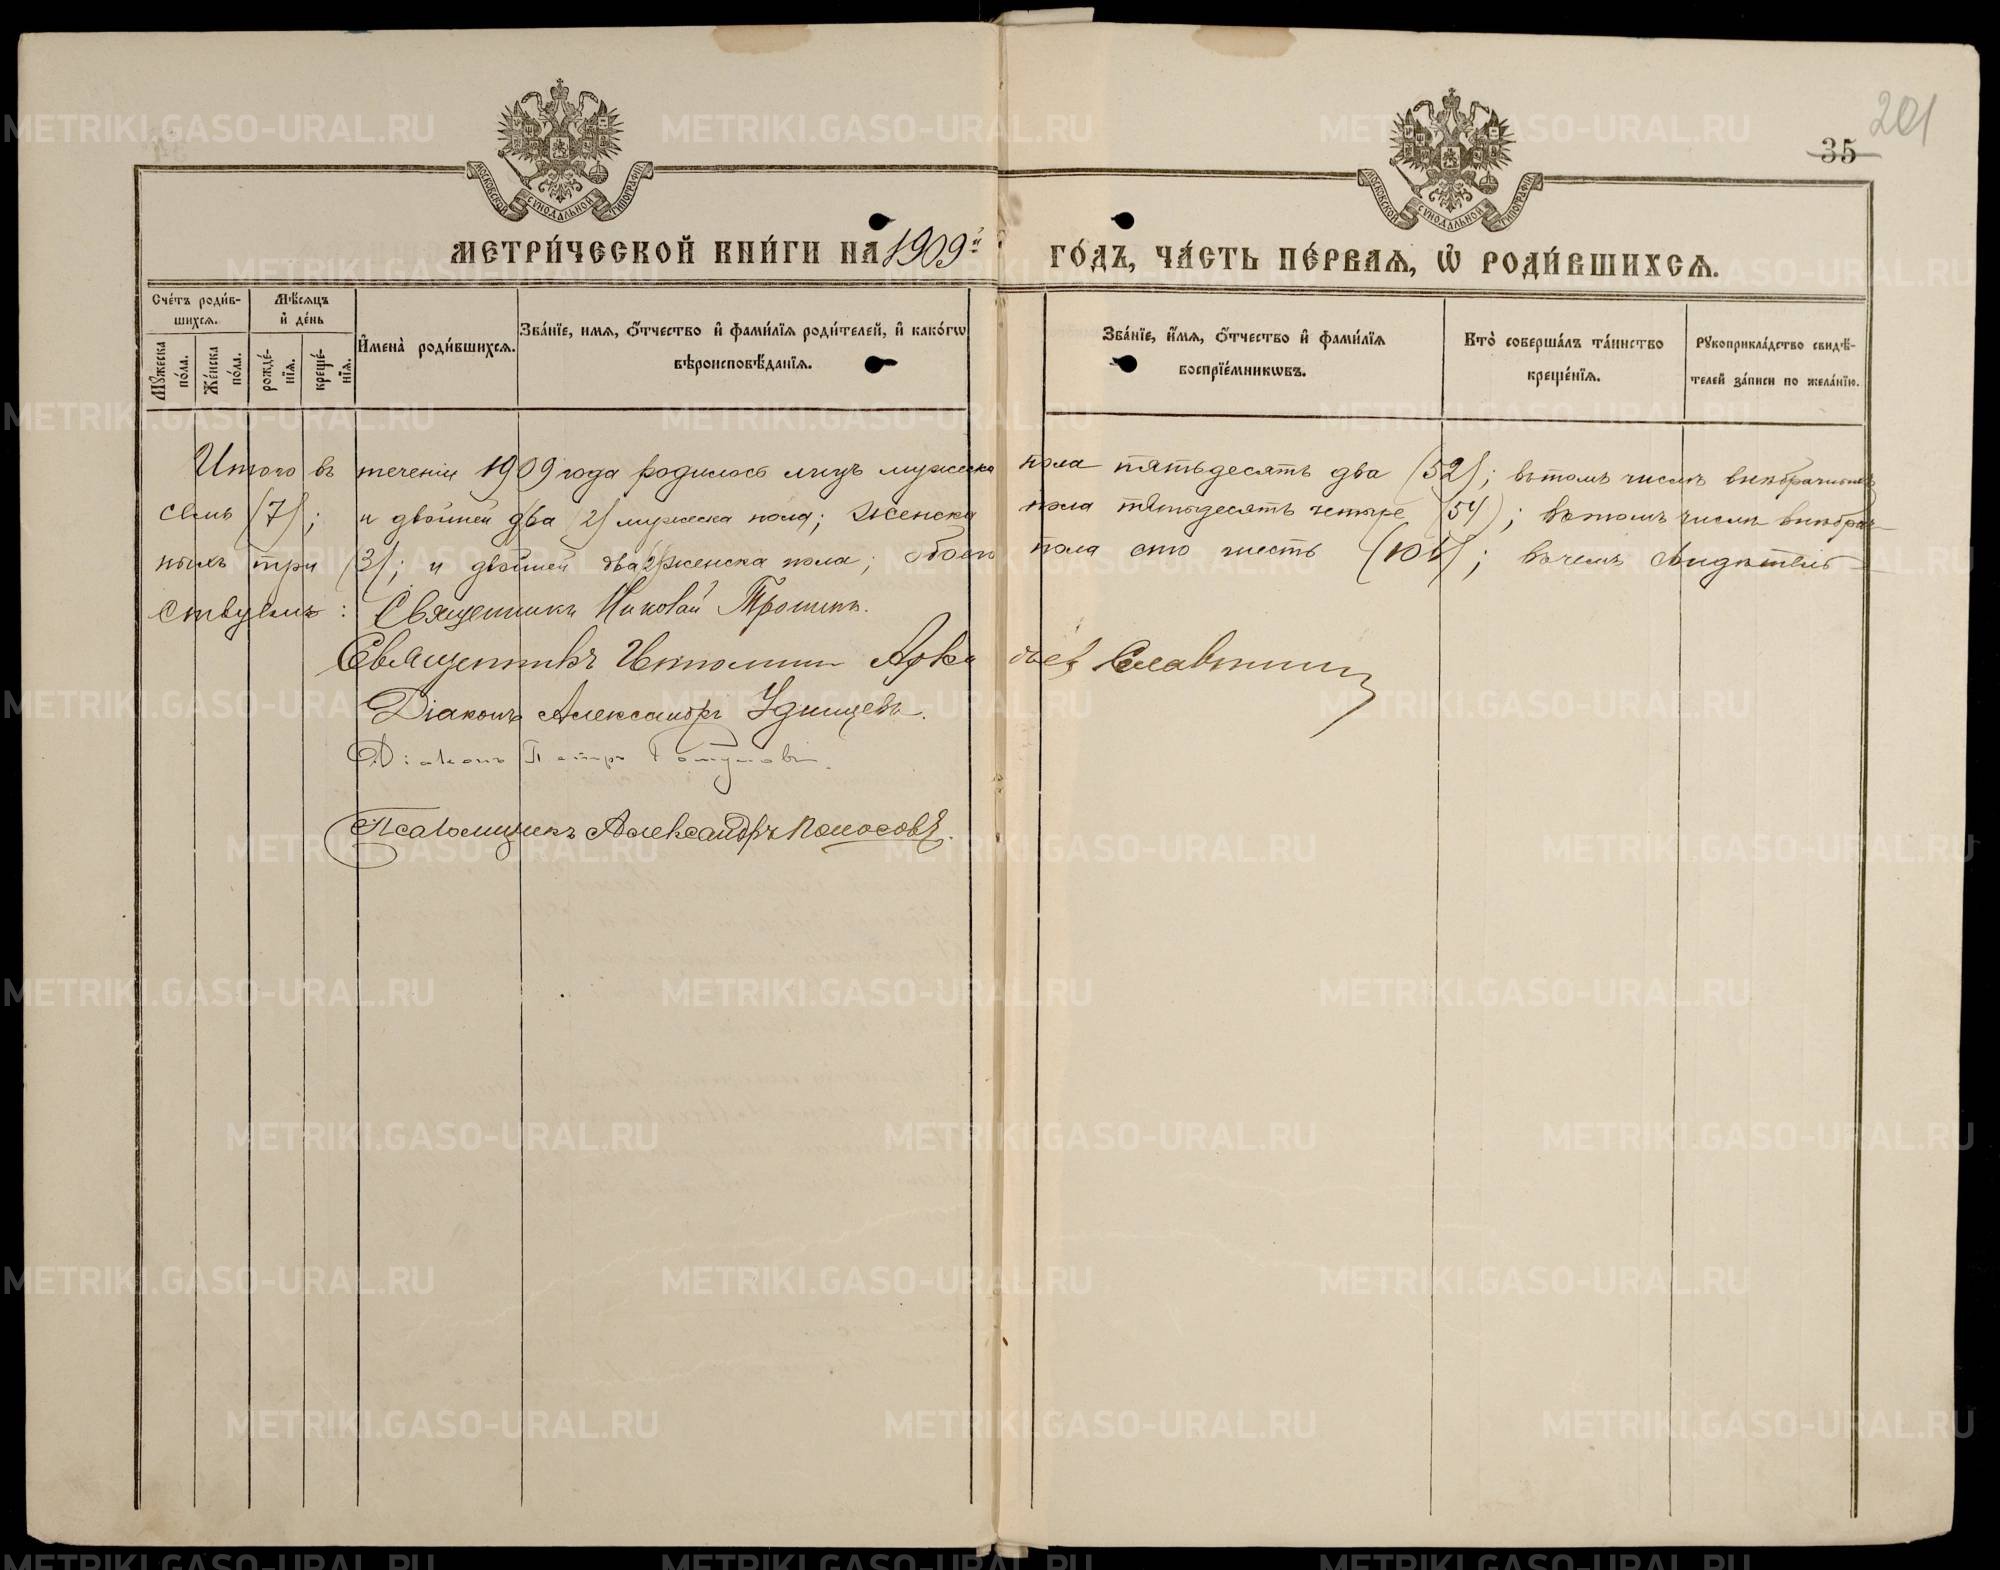 201
35
МОСКОВСКОЙ СѴНОДАЛЬНОЙ ТИПОГРАФІИ
МОСКОВСКОЙ СѴНОДАЛЬНОЙ ТИПОГРАФІИ
МЕТРИ́ЧЕСКОЙ КНИ́ГИ НА 1909й ГО́ДЪ, ЧА́СТЬ ПЕ́РВАЯ, Ѡ҆ РОДИ́ВШИХСЯ.
Сче́тъ роди́в-
шихся.
Мѣ́сяцъ
и҆ де́нь
Мꙋ́жеска
по́ла.
Же́нска
по́ла.
рожде́-
нїя.
креще́-
нїя.
И҆мена̀ роди́вшихся.
Зва́нїе, имя, ѻ҆́тчество и҆ фами́лїя роди́телей, и҆ како́гѡ
вѣроисповѣ́данїя.
Зва́нїе, и҆́мя, ѻ҆́тчество и҆ фами́лїя
воспрїе́мникѡвъ.
Кто̀ соверша́лъ та́инство
креще́нїя.
Рꙋкоприкла́дство свидѣ́-
телей за́писи по жела́нїю.
Итого въ теченіи 1909 года родилось лицъ мужеска пола пятьдесятъ два (52); въ томъ числѣ внѣбрачныхъ
семь (7); и двойней два (2) мужеска пола; женска пола пятьдесятъ четыре (54); въ томъ числѣ внѣбрач-
ныхъ три (3); и двойней два (2) женска пола; обоего пола сто шесть (106); въ чемъ свидѣтель-
ствуемъ: Священникъ Николай Трошинъ.
Священникъ Ипполитъ Славнинъ
Діаконъ Александръ Удинцевъ.
Діаконъ Петръ
Псаломщикъ Александръ Колосовъ.
METRIKI.GASO-URAL.RU